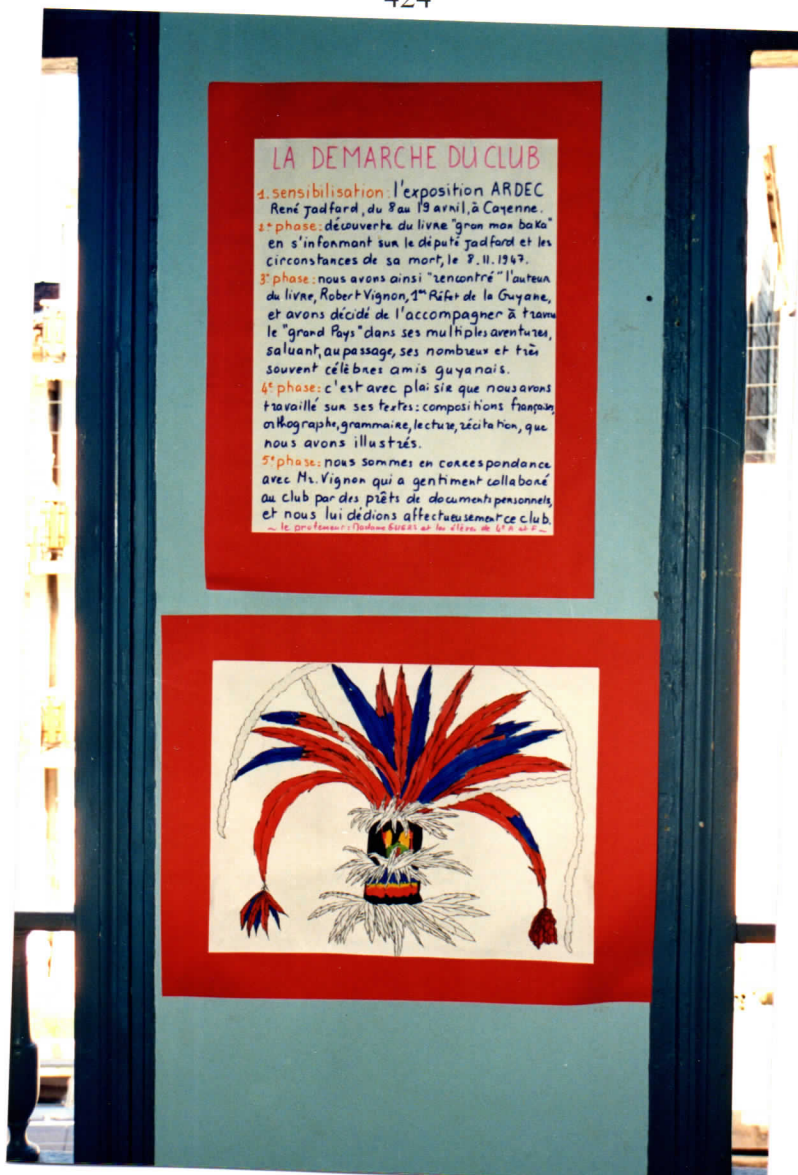 424
LA DEMARCHE DU CLUB
1. sensibilisation: l'exposition ARDEC
René Jadfard, du 8 au 19 avril, à Cayenne.
2e phase: découverte du livre "gran man baka"
en s'informant sur le député Jadfard et les
circonstances de sa mort, le 8.11.1947.
3e phase: nous avons ainsi "rencontré" l'auteur
du livre, Robert Vignon, 1er Préfet de la Guyane,
et avons décidé de l'accompagner à travers
le "grand Pays" dans ses multiples aventures,
saluant, au passage, ses nombreux et très
souvent célèbres amis guyanais.
4e phase: c'est avec plaisir que nous avons
travaillé sur ses textes: compositions françaises,
orthographe, grammaire, lecture, récitation, que
nous avons illustrés.
5e phase: nous sommes en correspondance
avec Mr. Vignon qui a gentiment collaboré
au club par des prêts de documents personnels,
et nous lui dédions affectueusement ce club.
~ le professeur: Madame et les élèves de